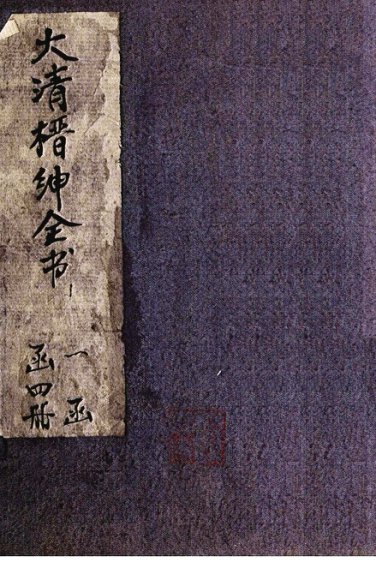 大清榗绅全书
一函
函四册